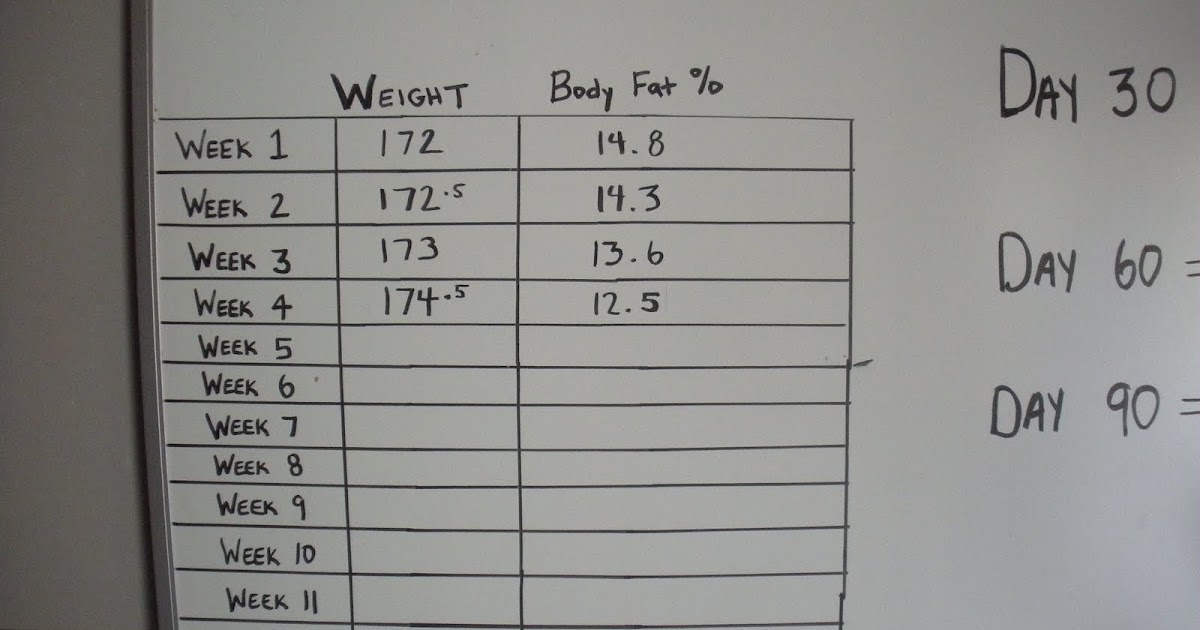 WEIGHT Body Fat %
WEEK 1 172 14.8
WEEK 2 172.5 14.3
WEEK 3 173 13.6
WEEK 4 174.5 12.5
WEEK 5
WEEK 6
WEEK 7
WEEK 8
WEEK 9
WEEK 10
WEEK 11
DAY 30
DAY 60 =
DAY 90 =